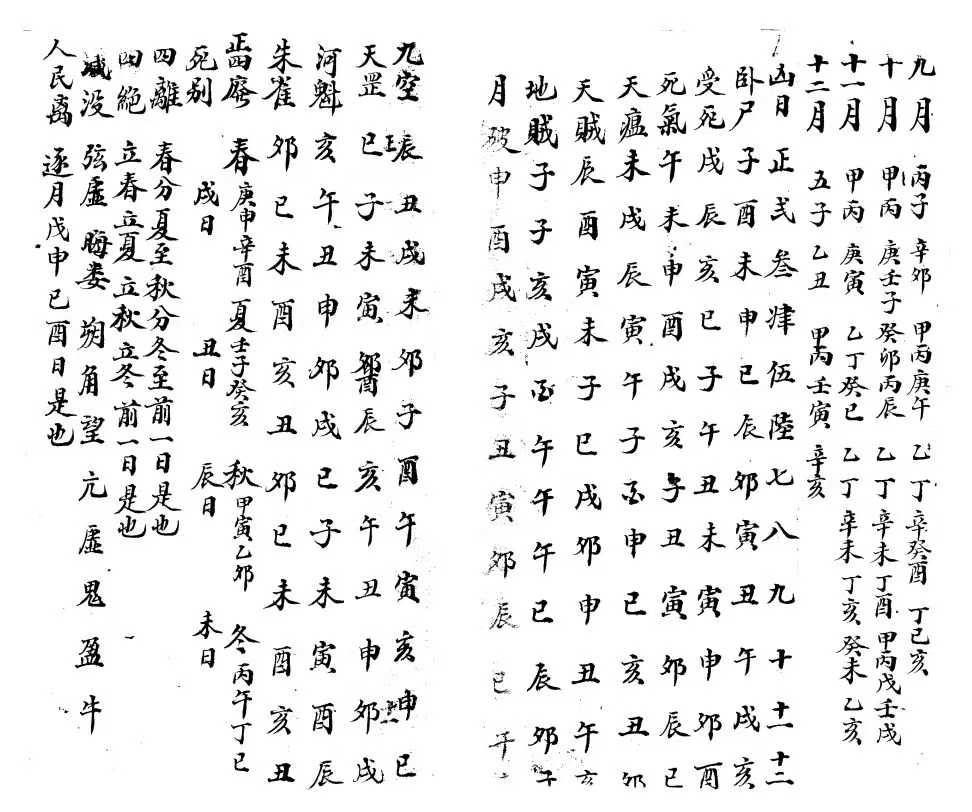 九月 丙子 辛卯 甲丙庚午 乙丁辛癸酉 丁己亥
十月 甲丙 庚壬子 癸卯 丙辰 乙丁辛未 丁酉 甲丙戌 壬戌
十一月 甲丙 庚寅 乙丁癸巳 乙丁辛未 丁亥 癸未 乙亥
十二月 五子 乙丑 甲丙壬寅 辛亥
凶日 正 弍 叁 肆 伍 陸 七 八 九 十 十一 十二
卧尸 子 酉 未 申 巳 辰 卯 寅 丑 午 戌 亥
受死 戌 辰 亥 巳 子 午 丑 未 寅 申 卯 酉
死氣 午 未 申 酉 戌 亥 子 丑 寅 卯 辰 巳
天瘟 未 戌 辰 寅 午 子 酉 申 巳 亥 丑 卯
天賊 辰 酉 寅 未 子 巳 戌 卯 申 丑 午 亥
地賊 子 子 亥 戌 酉 午 午 午 巳 辰 卯 子
月破 申 酉 戌 亥 子 丑 寅 卯 辰 巳 午
九空 辰 丑 戌 未 卯 子 酉 午 寅 亥 申 巳
天罡 巳 子 未 寅 酉 辰 亥 午 丑 申 卯 戌
河魁 亥 午 丑 申 卯 戌 巳 子 未 寅 酉 辰
朱雀 卯 巳 未 酉 亥 丑 卯 巳 未 酉 亥 丑
正四廢 春 庚申辛酉 夏 壬子癸亥 秋 甲寅乙卯 冬 丙午丁巳
死别 戌日 丑日 辰日 未日
四離 春分夏至秋分冬至前一日是也
四絶 立春立夏立秋立冬前一日是也
滅没 弦虚 晦娄 朔角 望亢 虚鬼 盈牛
人民离 逐月戊申己酉日是也